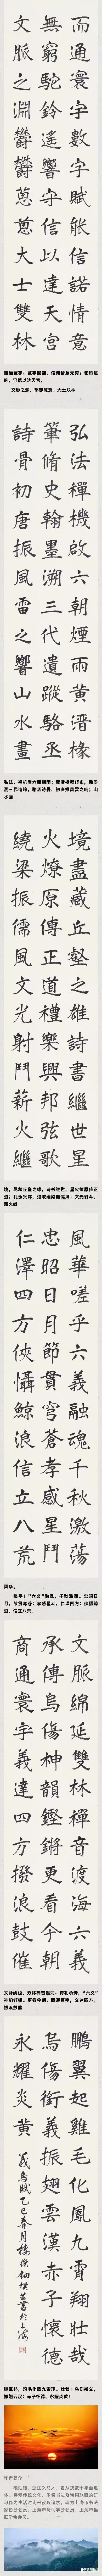 而通寰宇數字賦能信諾情意
無窮駝鈴遙響守信以達天宮
文脈之淵鬱鬱蔥蔥大士雙林
而通寰宇；数字赋能，信诺情意无穷；驼铃遥响，守信以达天宫。
文脉之渊，郁郁葱葱。大士双林
弘法禪機啟六朝煙雨黃溍椽
筆脩史翰墨溯三代遺蹤駱丞
詩骨初唐振風雷之響山水畫
弘法，禅机启六朝烟雨；黄溍椽笔修史，翰墨溯三代遗踪。骆丞诗骨，初唐振风雷之响；山水画
境盡藏丘壑之雄詩書繼世星
火燎原傳正道禮樂興邦弦歌
繞梁振儒風文光射鬥薪火繼
境，尽藏丘壑之雄。诗书继世，星火燎原传正道；礼乐兴邦，弦歌绕梁振儒风；文光射斗，薪火继
風華嗟乎六義融魂千秋激蕩
忠昭日月節貫穹蒼孝感星鬥
仁澤四方俠懾鯨浪信立八荒
风华。
嗟乎！“六义”融魂，千秋激荡。忠昭日月，节贯穹苍；孝感星斗，仁泽四方；侠慑鲸浪，信立八荒。
文脈綿延雙林禪音渡海六義
承傳烏傷神韻鏗鏘更看今朝
商通寰宇義達四方撥浪鼓催
文脉绵延，双林禅音渡海；诗礼承传，“六义”神韵铿锵。更看今朝，商通寰宇，义达四方。拨浪鼓催
鵬翼起雞毛化鳳九霄翔壯哉
烏傷銜義振翅雲漢赤子懷德
永耀炎黃
義烏賦乙巳春月樓 撰並書於上海
鹏翼起，鸡毛化凤九霄翔。壮哉！乌伤衔义，振翅云汉；赤子怀德，永耀炎黄！
作者简介